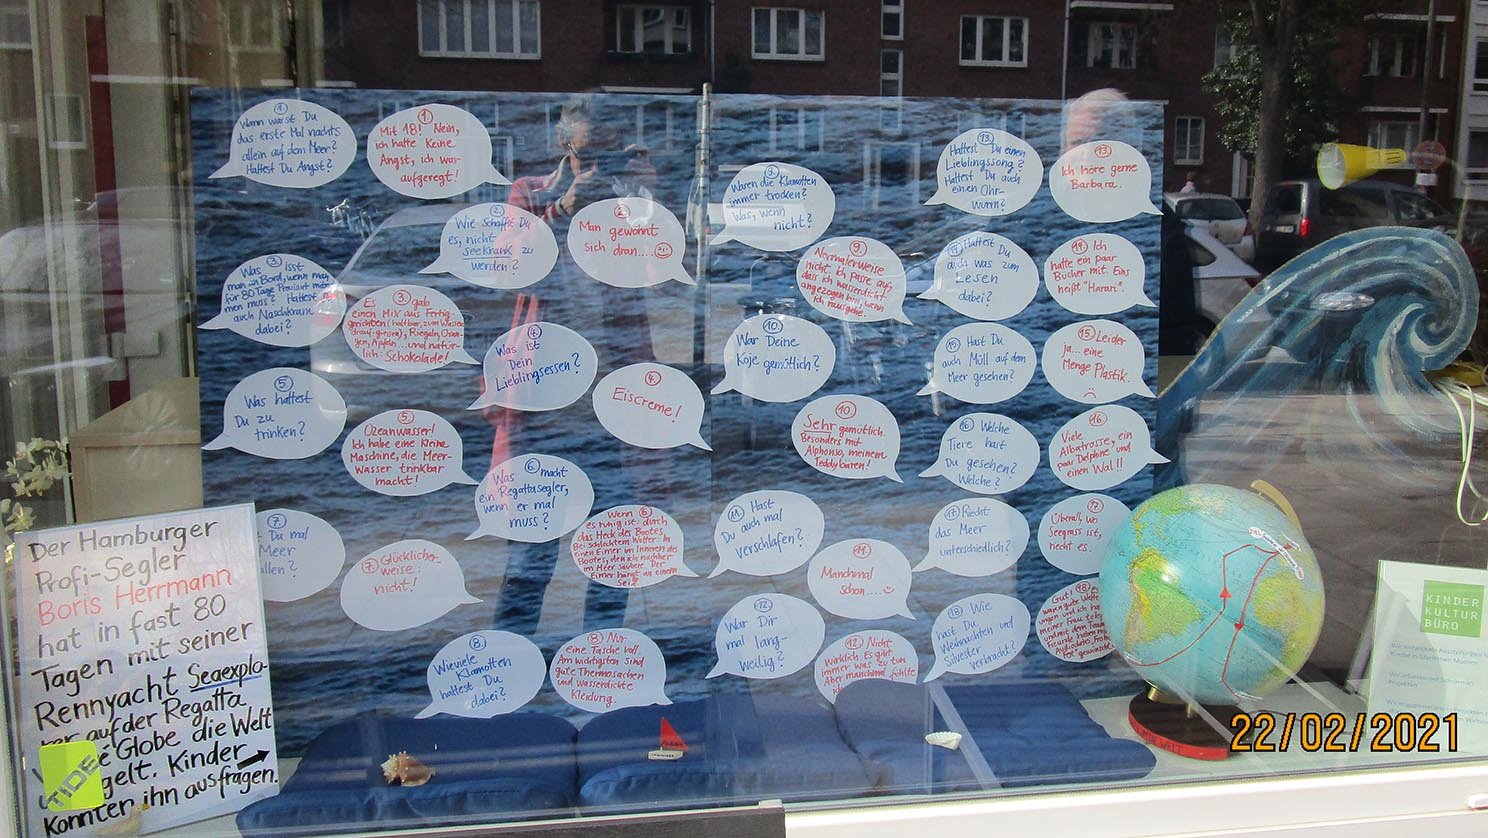 1.
Wann warst Du
das erste Mal nachts
allein auf dem Meer?
Hattest Du Angst?
1.
Mit 18! Nein,
ich hatte Keine
Angst, ich war
aufgeregt!
2.
Wie schaffst Du
es, nicht
seekrank zu
werden?
2.
Man gewöhnt
sich dran....
3.
Was isst
man an Bord, wenn man
für 80 Tage Proviant mitneh
men muss? Hattest
auch Naschkram
dabei?
3.
Es gab
einen Mix aus Fertig-
gerichten (haltbar, zum Wasser
drauf-giessen), Riegeln, Oran-
gen, Äpfeln... und natür-
lich: Schokolade!
4.
Was ist
Dein
Lieblingsessen?
4.
Eiscreme!
5.
Was hattest
Du zu
trinken?
5.
Ozeanwasser!
Ich habe eine Kleine
Maschine, die Meer-
wasser trinkbar
macht!
6.
Was macht
ein Regattasegler,
wenn er mal
muss?
6.
Wenn
es ruhig ist: durch
das Heck des Bootes.
Bei schlechtem Wetter: In
einen Eimer im Inneren des
Bootes, den ich nachher
im Meer säubere. Der
Eimer hängt an einem
Seil
7.
Du mal
Meer
allen?
7. Glücklicher-
weise:
nicht!
8.
Wieviele
Klamotten
hattest Du
dabei?
8. Nur
eine Tasche voll.
Am wichtigsten sind
gute Thermosachen
und wasserdichte
Kleidung.
9.
Waren die Klamotten
immer trocken?
Was, wenn
nicht?
9.
Normalerweise
nicht. Ich passe auf,
dass ich wasserdicht
angezogen bin, wenn
ich rausgehe.
10.
War Deine
Koje gemütlich?
10.
Sehr gemütlich.
Besonders mit
Alphonso, meinem
Teddybären!
11. Hast
Du auch mal
verschlafen?
11.
Manchmal
schon....
12.
War Dir
mal lang-
weilig?
12. Nicht
wirklich. Es gibt
immer was zu tun
Aber manchmal fühlte
ich
13.
Hattest Du einen
Lieblingssong?
Hattest Du auch
einen Ohr-
wurm?
13.
Ich höre gerne
Barbara.
14. Hattest Du
auch was zum
Lesen
dabei?
14. Ich
hatte ein paar
Bücher mit. Eins
heißt "Harari".
15. Hast Du
auch Müll auf dem
Meer gesehen?
15. Leider
ja... eine
Menge Plastik.
16. Welche
Tiere hast
Du gesehen?
Welche?
16.
Viele
Albatrosse, ein
paar Delphine und
einen Wal!!
17. Riecht
das Meer
unterschiedlich?
17.
Überall, wo
Seegrass ist,
riecht es.
18. Wie
hast Du
Weihnachten und
Silvester
verbracht?
Gut! 18. Es
waren gute Wetter
und ich ha
meiner Frau tele
und mit dem Team
Freunde haben mir
Der Hamburger
Profi-Segler
Boris Herrmann
hat in fast 80
Tagen mit seiner
Rennyacht Seaexplo-
rer auf der Regatta
Globe die Welt
gelt. Kinder
Konnten ihn ausfragen.
TIDE
KINDER
KULTUR
BÜRO
22/02/2021